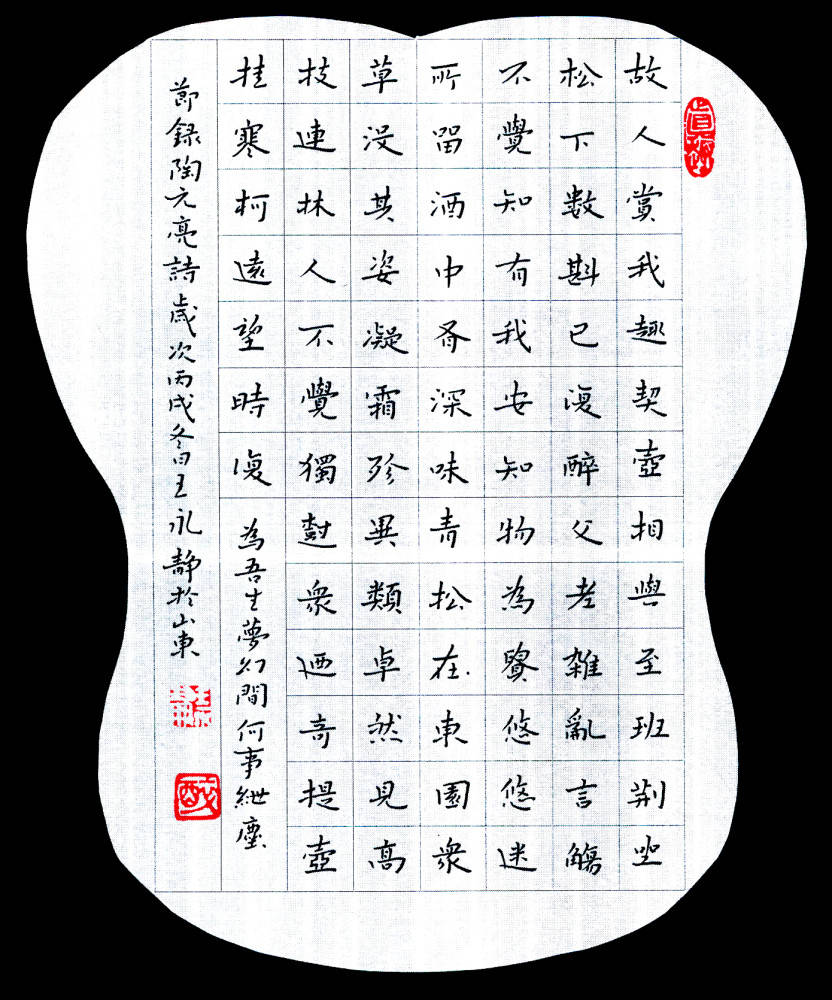 故人賞我趣契壺相與至班荆坐
松下数斟已復醉父老雜亂言觴
不覺知有我安知物為貴悠悠迷
所留酒中有深味青松在東園衆
草没其姿凝霜殄異類卓然見高
技連林人不覺獨樹衆迺奇提壺
挂寒柯遠望時復為吾生夢幻間何事紲塵
節録陶元亮詩歲次丙戌冬日王永靜於山東